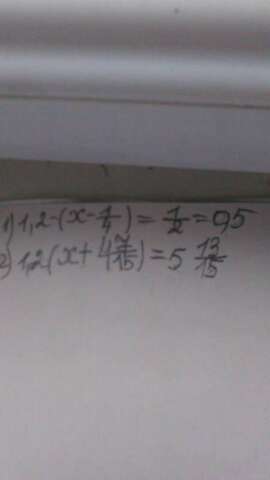 1) 1,2-(x-1/4)=1/2=0,5
2) 1,2(x+4 7/15)=5 13/15